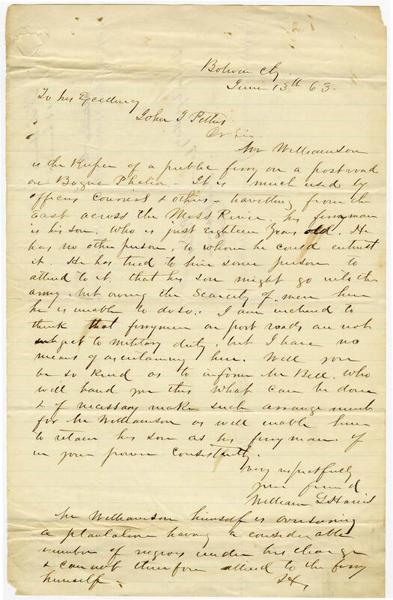 Bolivar Cty
June 13th 63.
To his Excellency
John J Pettus
Dr Sir
Mr Williamson
is the Keeper of a public ferry on a postroad
on Bogue Phalia. It is much used by
officers Couriers & others - travelling from the
East across the Miss River. his ferryman
is his son, who is just Eighteen Years old. He
has no other person, to whom he could entrust
it. He has tried to hire some person to
attend to it, that his son might go into the
army but owing the Scarcity of men here
he is unable to do so. I am inclined to
think that ferrymen on post roads are not
subject to military duty, but I have no
means of ascertaining here. Will you
be so kind as to inform Mr Bell, who
will hand you this what can be done
& if necessary make such arrangements
for Mr Williamson as will enable him
to retain his son as his ferryman if
in your power consistently.
Very respectfully
your friend
William L Harris
Mr Williamson himself is overseeing
a plantation having a considerable
number of negroes under his charge
& can not therefore attend to the ferry
himself.